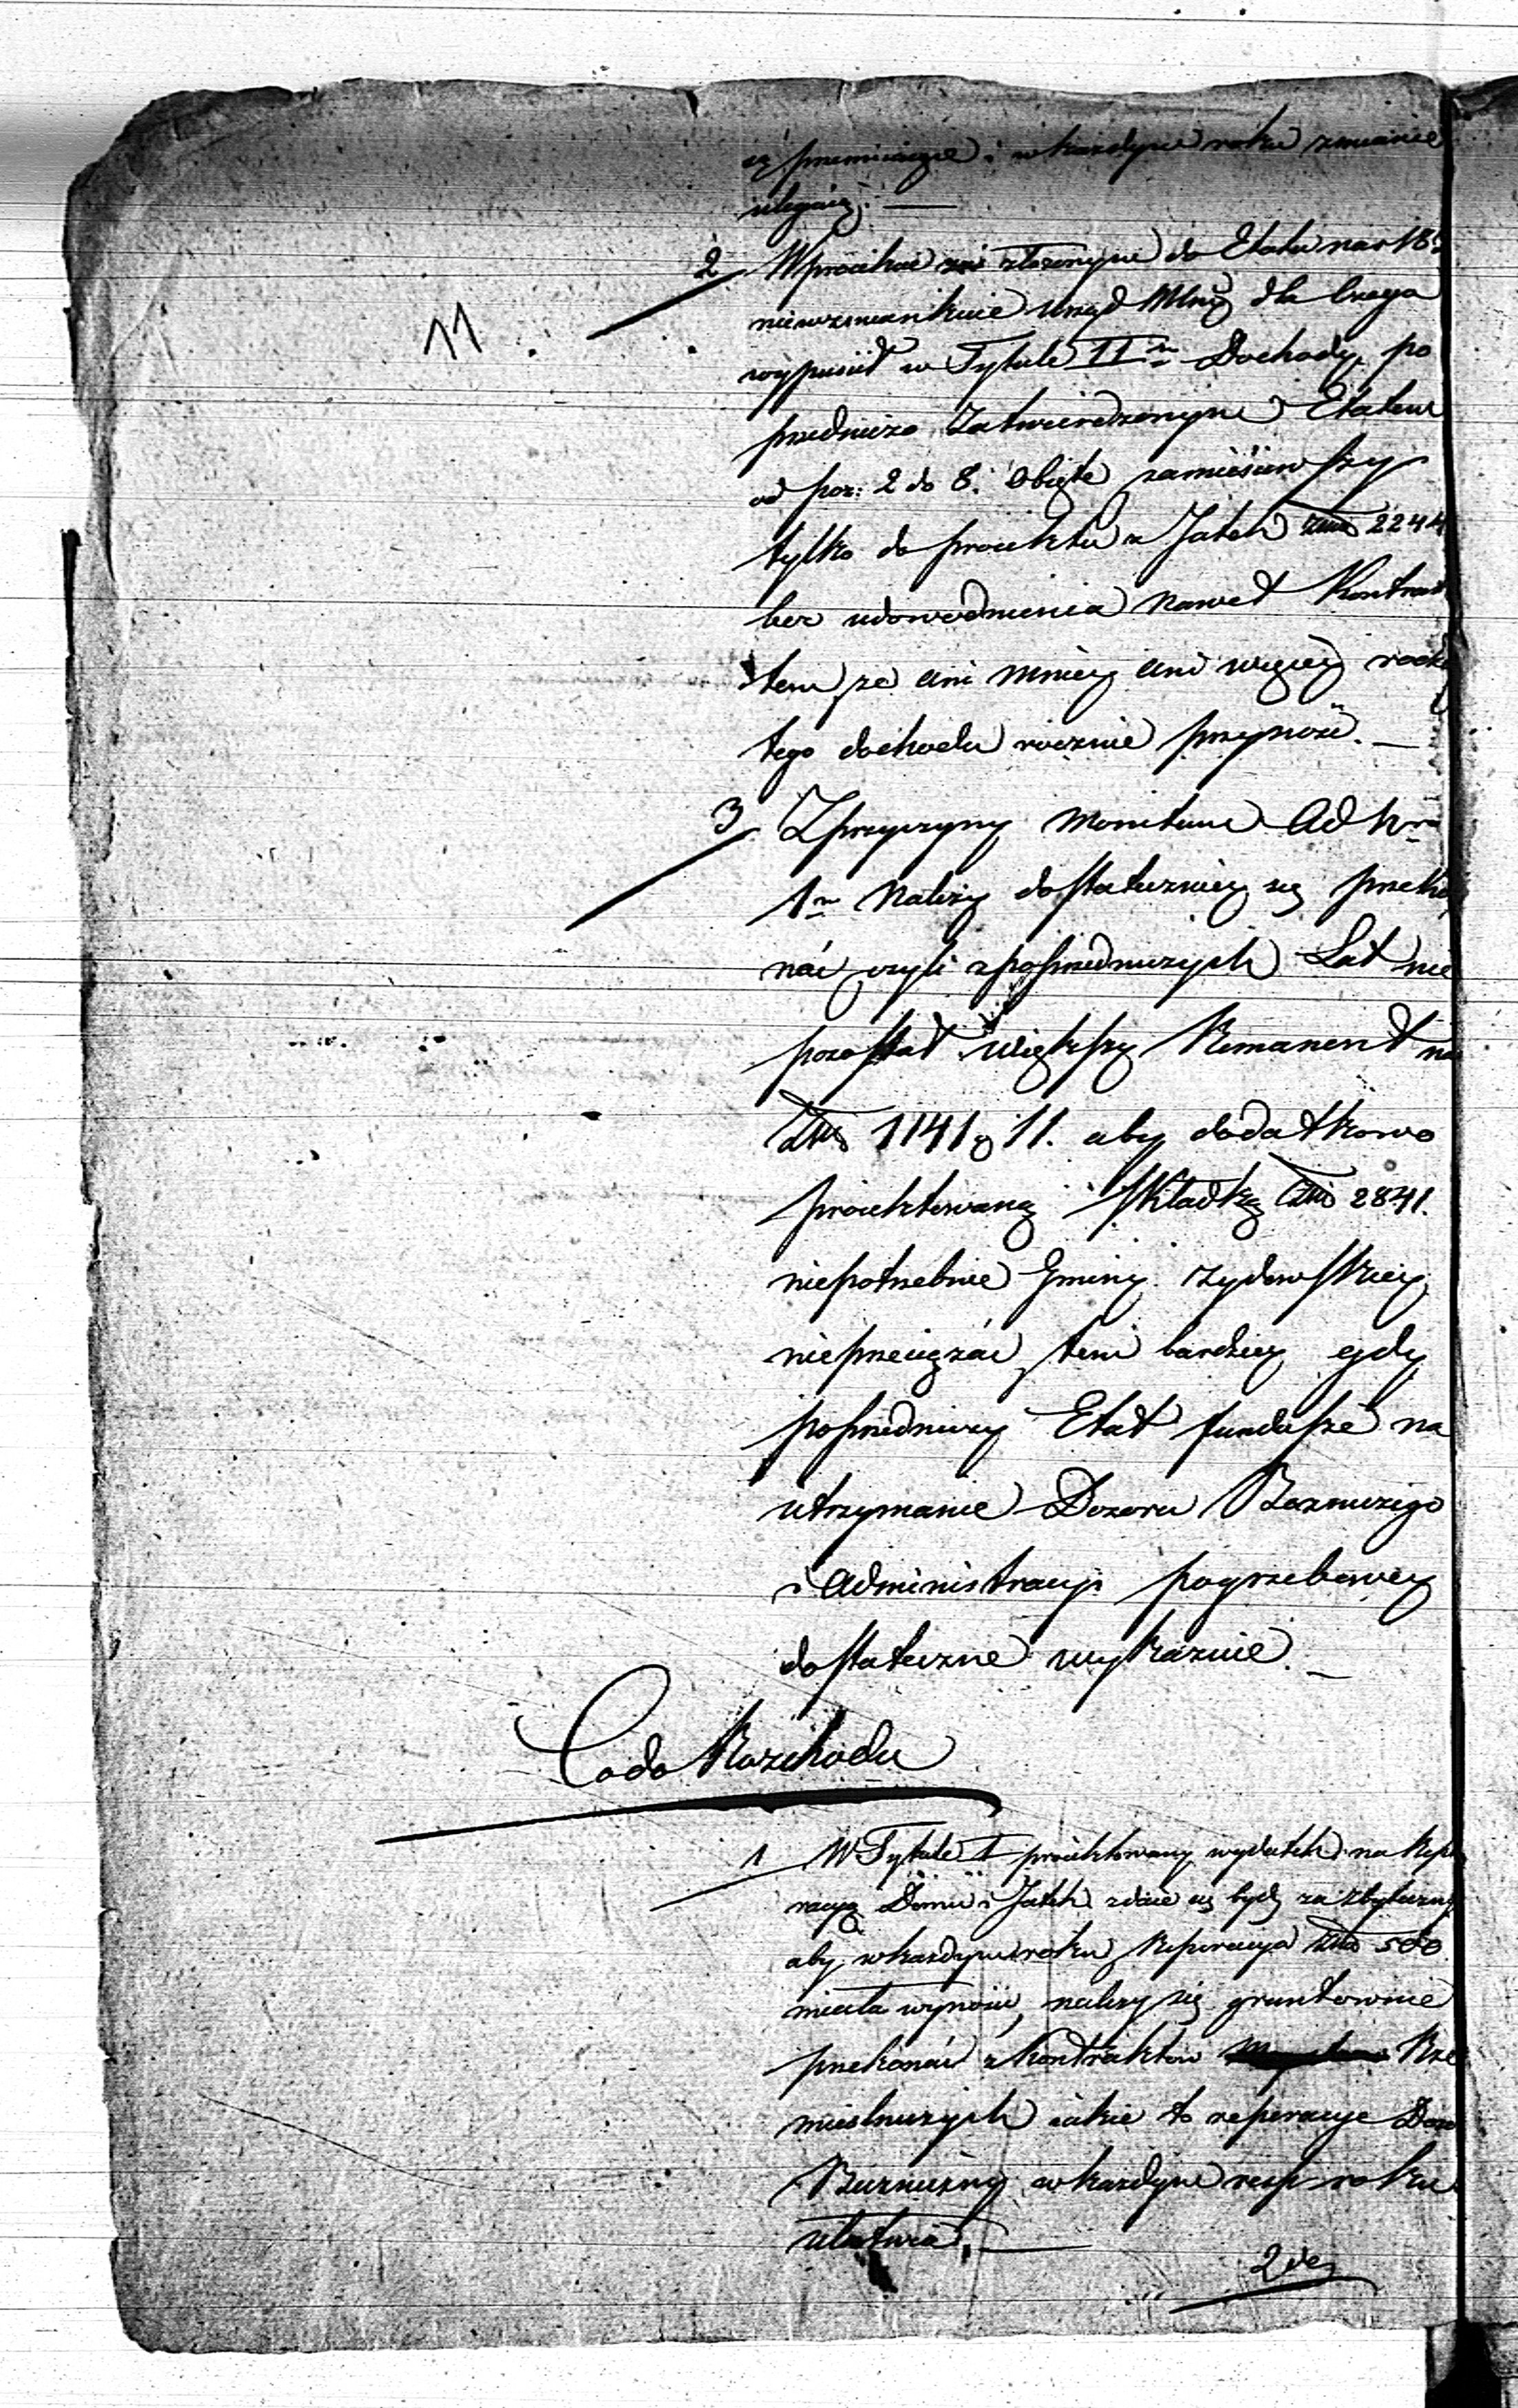 się i w każdym roku zmianie
ulegaią. —
2 W proiekcie zaś złożonym do Etatu na r 18
niewzmiankuie Urząd dla czego
wypuścił w Tytule II^m Dochody, po
przedniczo Zatwierdzonym Etatem
od poz: 2 do 8. Obięte zamieściwszy
tylko do proiektu z Jatek Złł 2244
bez udowodnienia nawet Kontrak
tem, że ani mniey ani więcey
tego dochodu rocznie przynosi. —
3 Z przyczyny Monitum Ad N^ra
1^m Należy dostateczniey się przeko
nać czyli z poprzedniczych Lat nie
pozostał większy Remanent na
Złł 1141 g 11. aby dodatkowo
proiektowaną Składką Złł 2841.
niepotrzebnie Gminy żydowskiey
nieprzeciążać, tem bardziey gdy
poprzedniczy Etat fundusze na
utrzymanie Dozoru Bożniczego
i Administracyi pogrzebowey
dostateczne wykazuie. —
Co do Rozchodu
1 W Tytule I proiektowany wydatek na Repe
racyą Domu i Jatek zdaie się bydź za zbyteczny
aby w każdym roku Reperacya Złł 500
miała wynosić, należy się gruntownie
przekonać z Kontraktów Rze
mieślniczych iakie to reperacye Dozo
Bożniczny w każdym roku
ułatwia. —
2 do
11